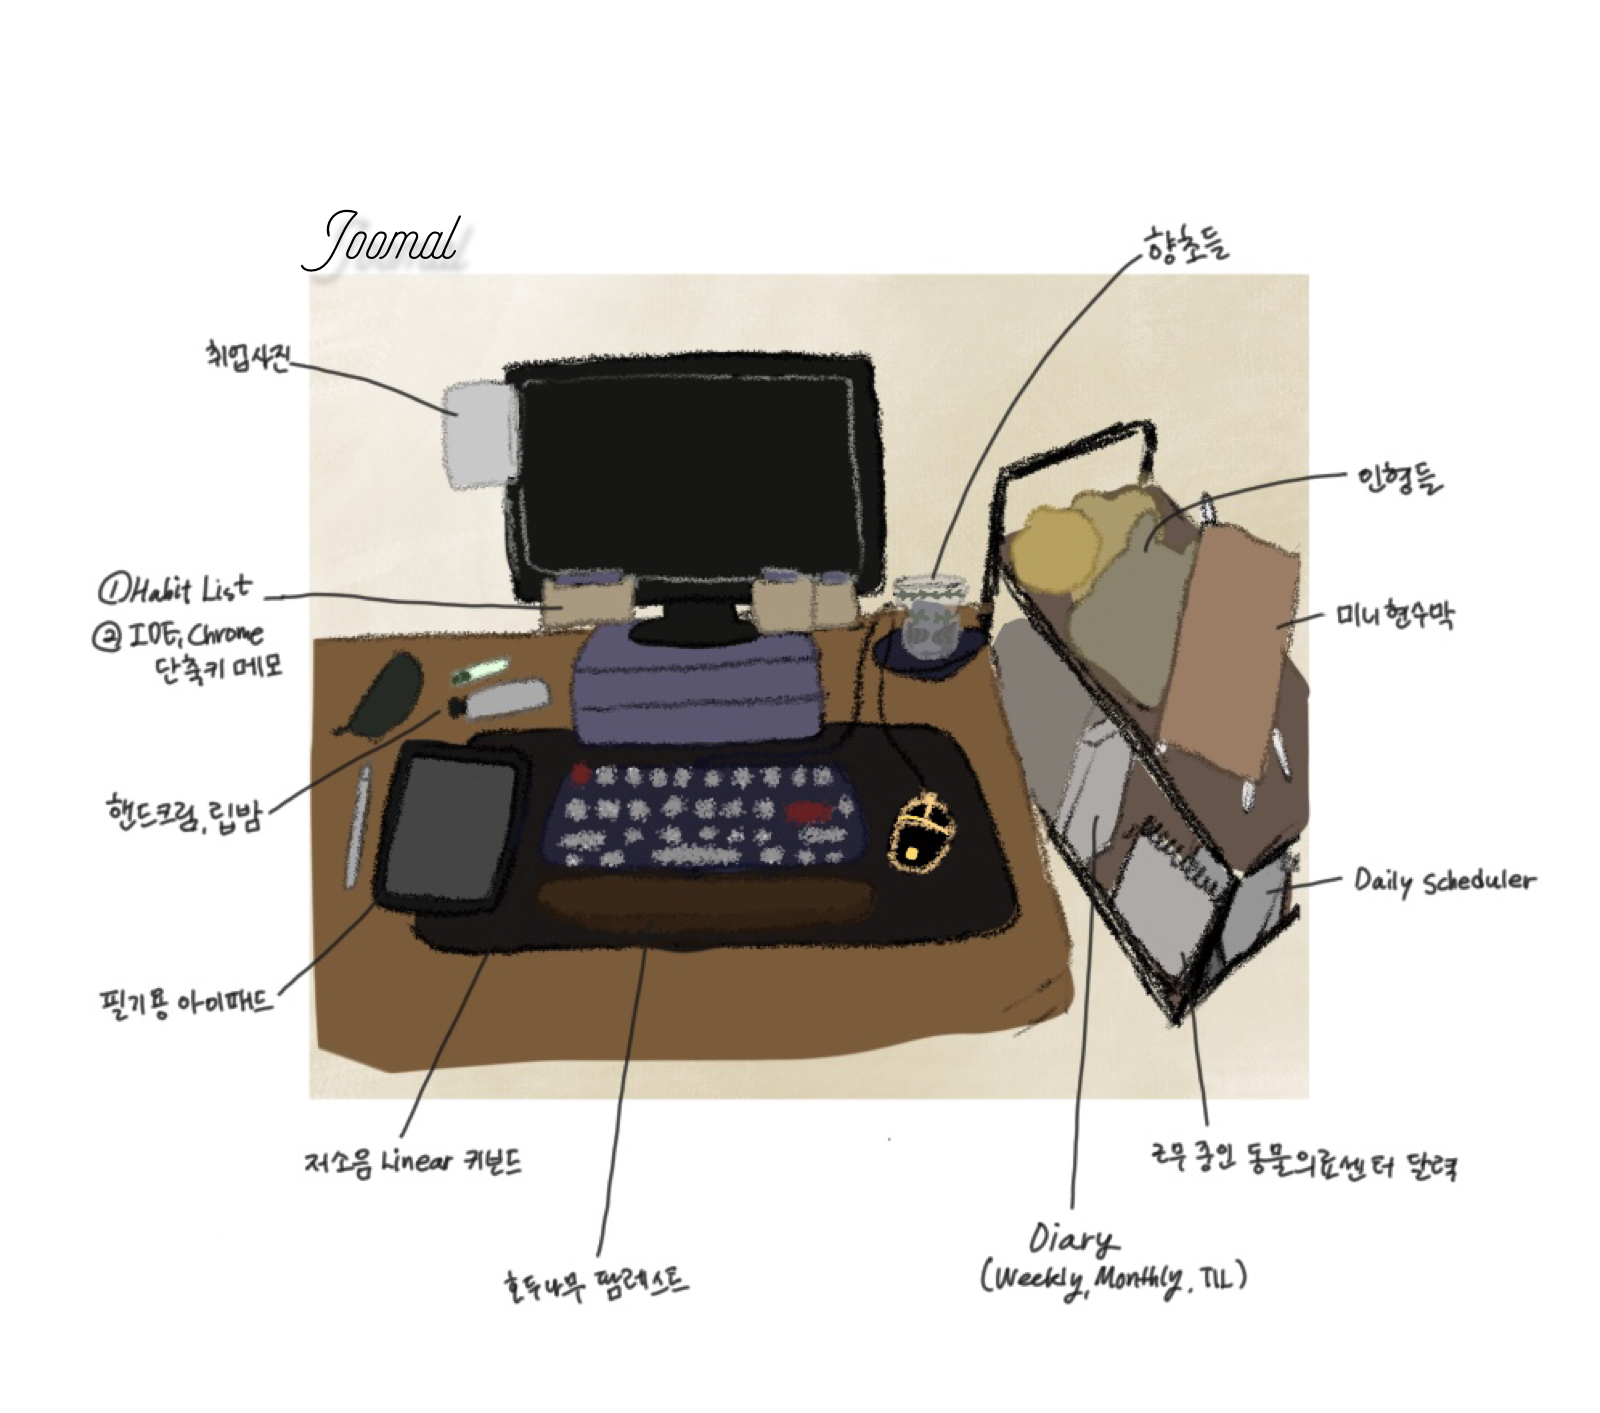 Joomal
향초들
취업사진
인형들
① Habit List
② IOE, Chrome
단축키 메모
미니 현수막
핸드크림, 립밤
Daily Scheduler
필기용 아이패드
저소음 Linear 키보드
근무 중인 동물의료센터 달력
Diary
(Weekly, Monthly, TIL)
호두나무 팜레스트